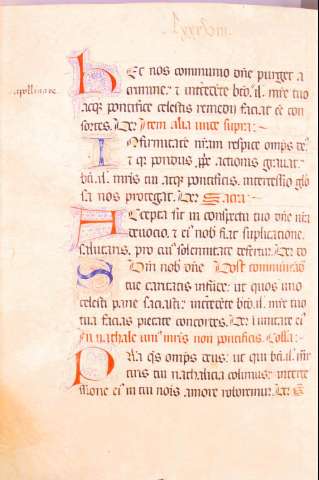 apollinare
Hec nos communio dñe purget a
crimine. ⁊ intercedẽte bt̃o. il. mr̃e tuo
atq; pontifice celestis remedii faciat eẽ con
sortes. Per. Item alia unce supra:~
Infirmitatẽ nr̃am respice omps ds̃.
⁊ q̃ pondus ꝓpe actionis grauat.
bt̃i. il. mr̃is tui atq; pontificis. intercessio glo
sa nos protegat. Per. Sacra:~
Accepta sit in conspectu tuo dñe nr̃a
deuocio. ⁊ eiꝰ nob̃ fiat suplicatione.
salutaris. pro cuiꝰ solennitate defertur. Per. co
Spm̃ nob̃ dñe. Post communiõẽ
tue caritatis infũde. ut quos uno
celesti pane saciasti. intercedẽte bt̃o. il. mr̃e tuo
tua facias pietate concordes. Per. i unitate eiꝰ
In nathale uniꝰ mr̃is non pontificis. Collã:~
Pr̃a qs̃ omps deus. ut qui bt̃i. il. mr̃
tiris tui nathalicia colimus. interces
sione eiꝰ in tui nois amore roboremur. Per. S̃